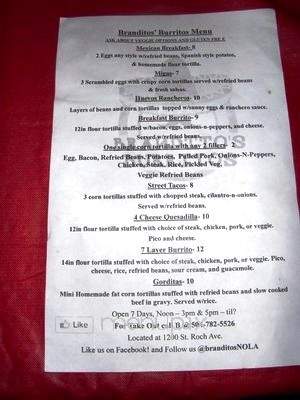 Branditos' Burritos Menu
ASK ABOUT VEGGIE OPTIONS AND GLUTEN FREE
Mexican Breakfast- 8
2 Eggs any style w/refried beans, Spanish style potatos,
& homemade flour tortilla.
Migas- 7
3 Scrambled eggs with crispy corn tortillas served w/refried beans
& fresh salsas.
Huevos Rancheros- 10
Layers of beans and corn tortillas topped w/sunny eggs & ranchero sauce.
Breakfast Burrito- 9
12in flour tortilla stuffed w/bacon, eggs, onions-n-peppers, and cheese.
Served w/refried beans.
One single corn tortilla with any 2 fillers- 2
Egg, Bacon, Refried Beans, Potatoes, Pulled Pork, Onions-N-Peppers,
Chicken, Steak, Rice, Pickled Veg,
Veggie Refried Beans
Street Tacos- 8
3 corn tortillas stuffed with chopped steak, cilantro-n-onions.
Served w/refried beans.
4 Cheese Quesadilla- 10
12in flour tortilla stuffed with choice of steak, chicken, pork, or veggie.
Pico and cheese.
7 Layer Burrito- 12
14in flour tortilla stuffed with choice of steak, chicken, pork, or veggie. Pico,
cheese, rice, refried beans, sour cream, and guacamole.
Gorditas- 10
Mini Homemade fat corn tortillas stuffed with refried beans and slow cooked
beef in gravy. Served w/rice.
Open 7 Days, Noon – 3pm & 5pm – til?
Like
For Take Out call B @ 504-782-5526
Located at 1200 St. Roch Ave.
Like us on Facebook! and Follow us @branditosNOLA